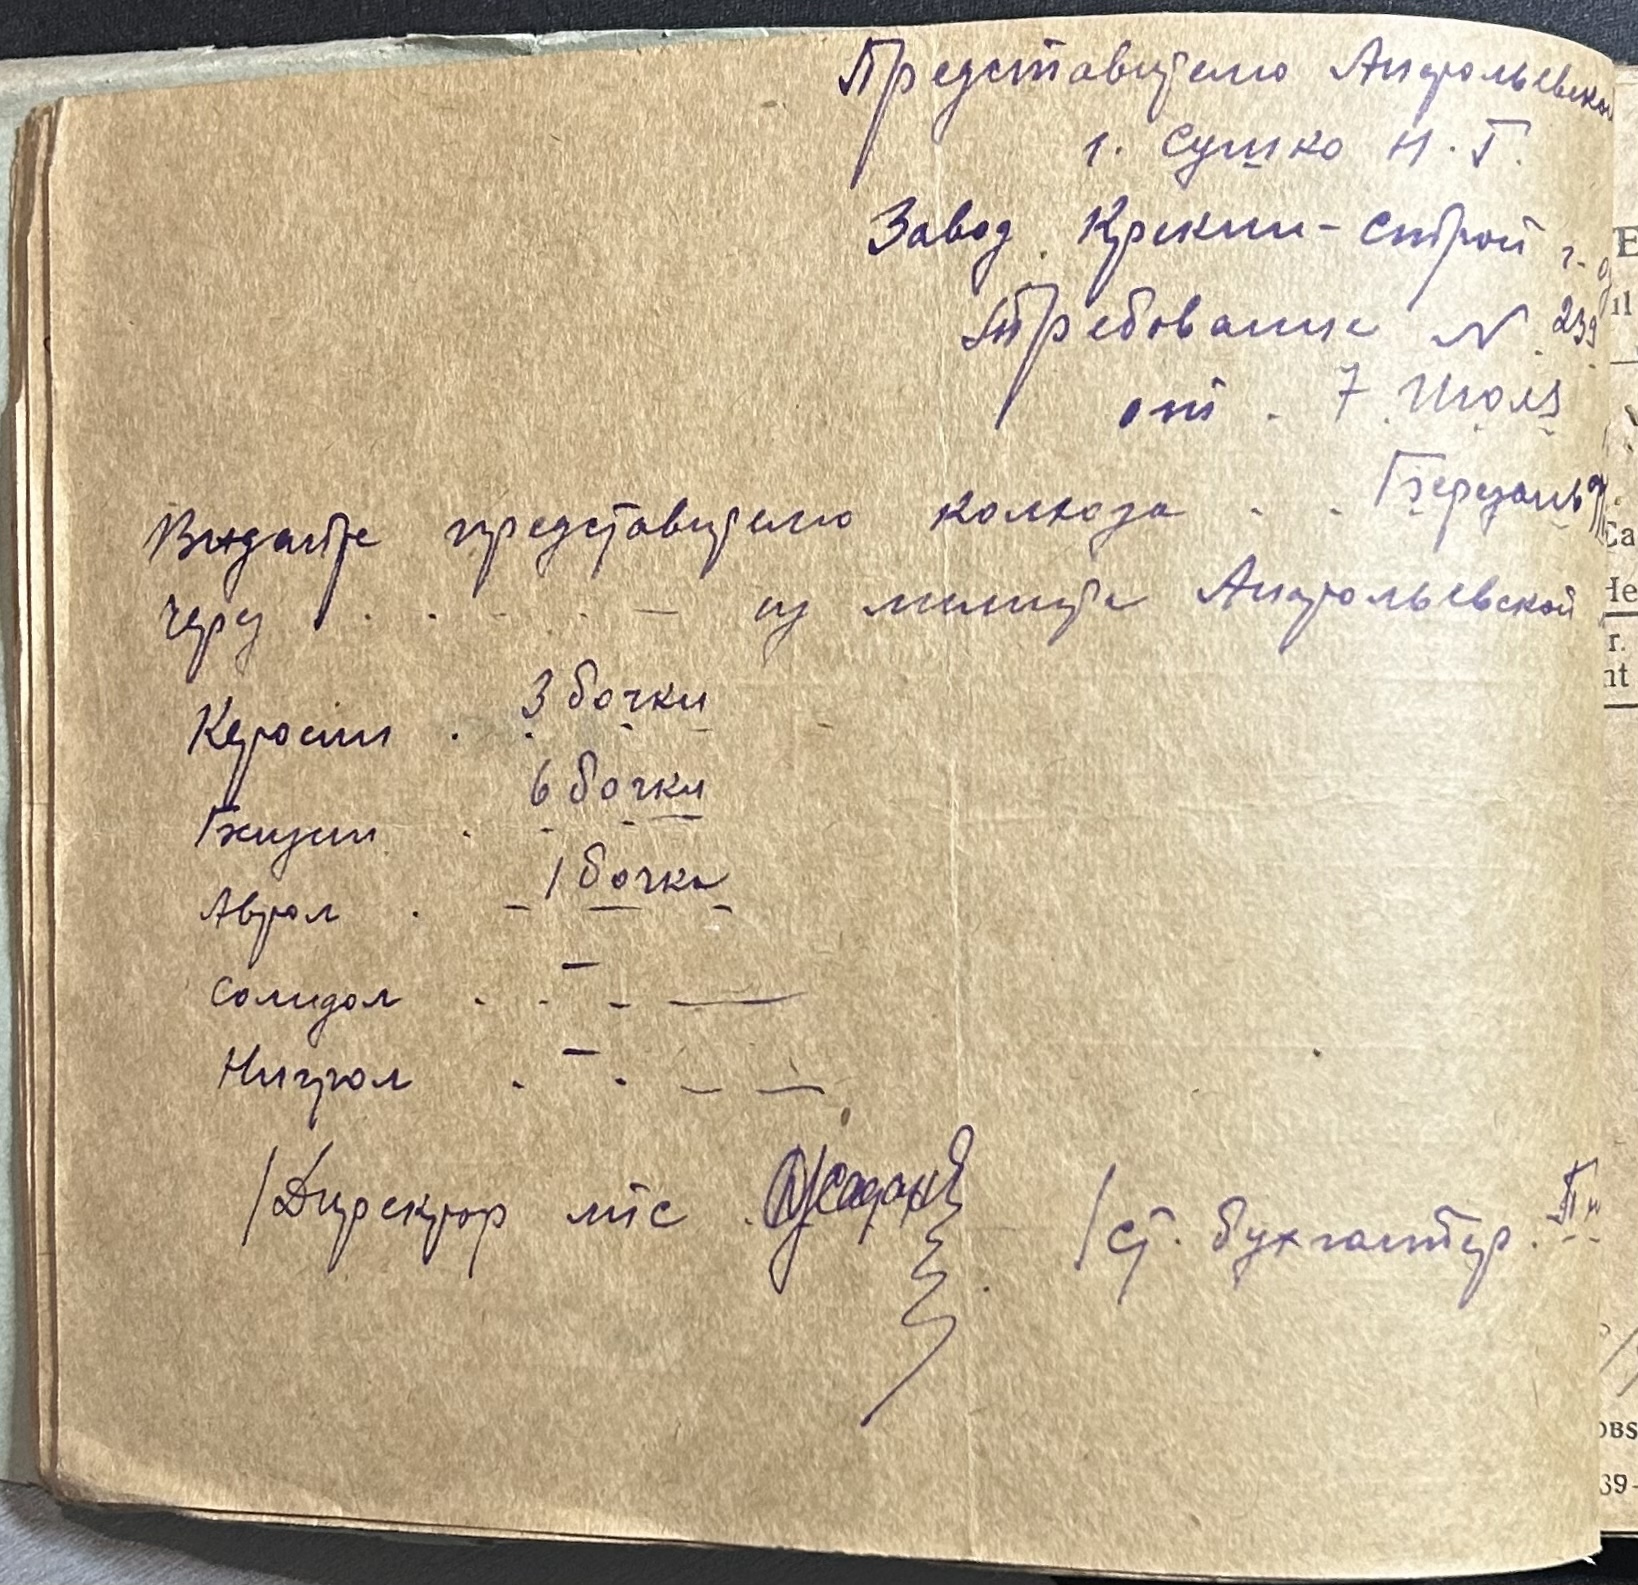 Представителю Андрольевской
г. Сушко Н. Г.
Завод. Крекин-Строй г.
Требование N. 239
от. 7 Июля
Видайте представителю колхоза
через из лимита Андрольевской
Керосин . 3 бочки
Бензин . 6 бочки
Автол . 1 бочка
Солидол
Нигрол
/Директор мтс
/Ст. бухгалтер.